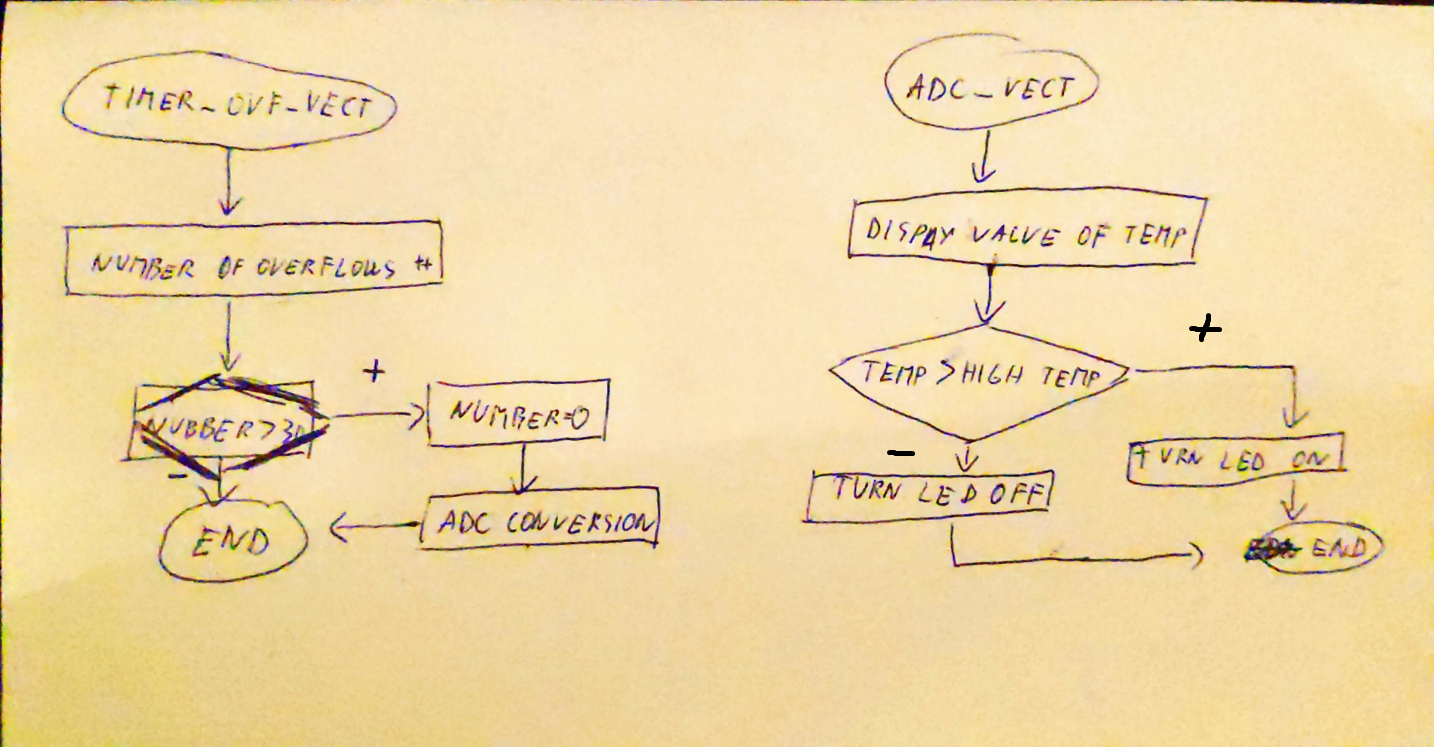 TIMER_OVF_VECT
NUMBER OF OVERFLOWS ++
+
NUBBER>30
-
NUMBER=0
ADC CONVERSION
END
ADC_VECT
DISPAY VALUE OF TEMP
TEMP>HIGH TEMP
+
-
TURN LED OFF
TURN LED ON
END